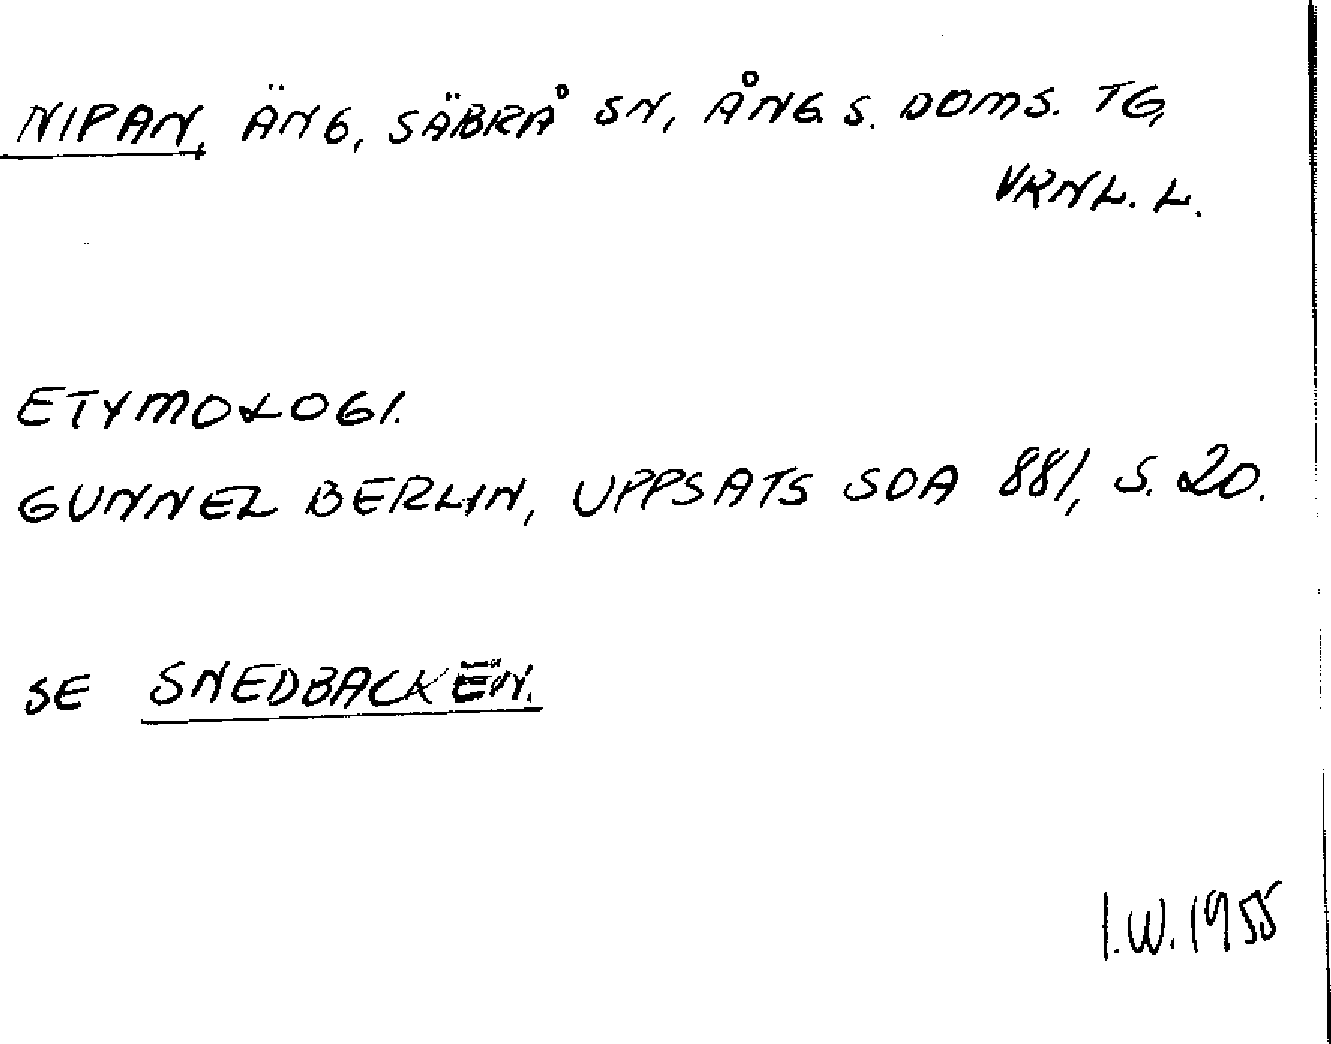 NIPAN, ÄNG, SÄBRÅ SN, ÅNG. S. DOMS. TG,
VRNL. L.
ETYMOLOGI.
GUNNEL BERLIN, UPPSATS SOA 881, S. 20.
SE SNEDBACKEN.
I.W. 1955